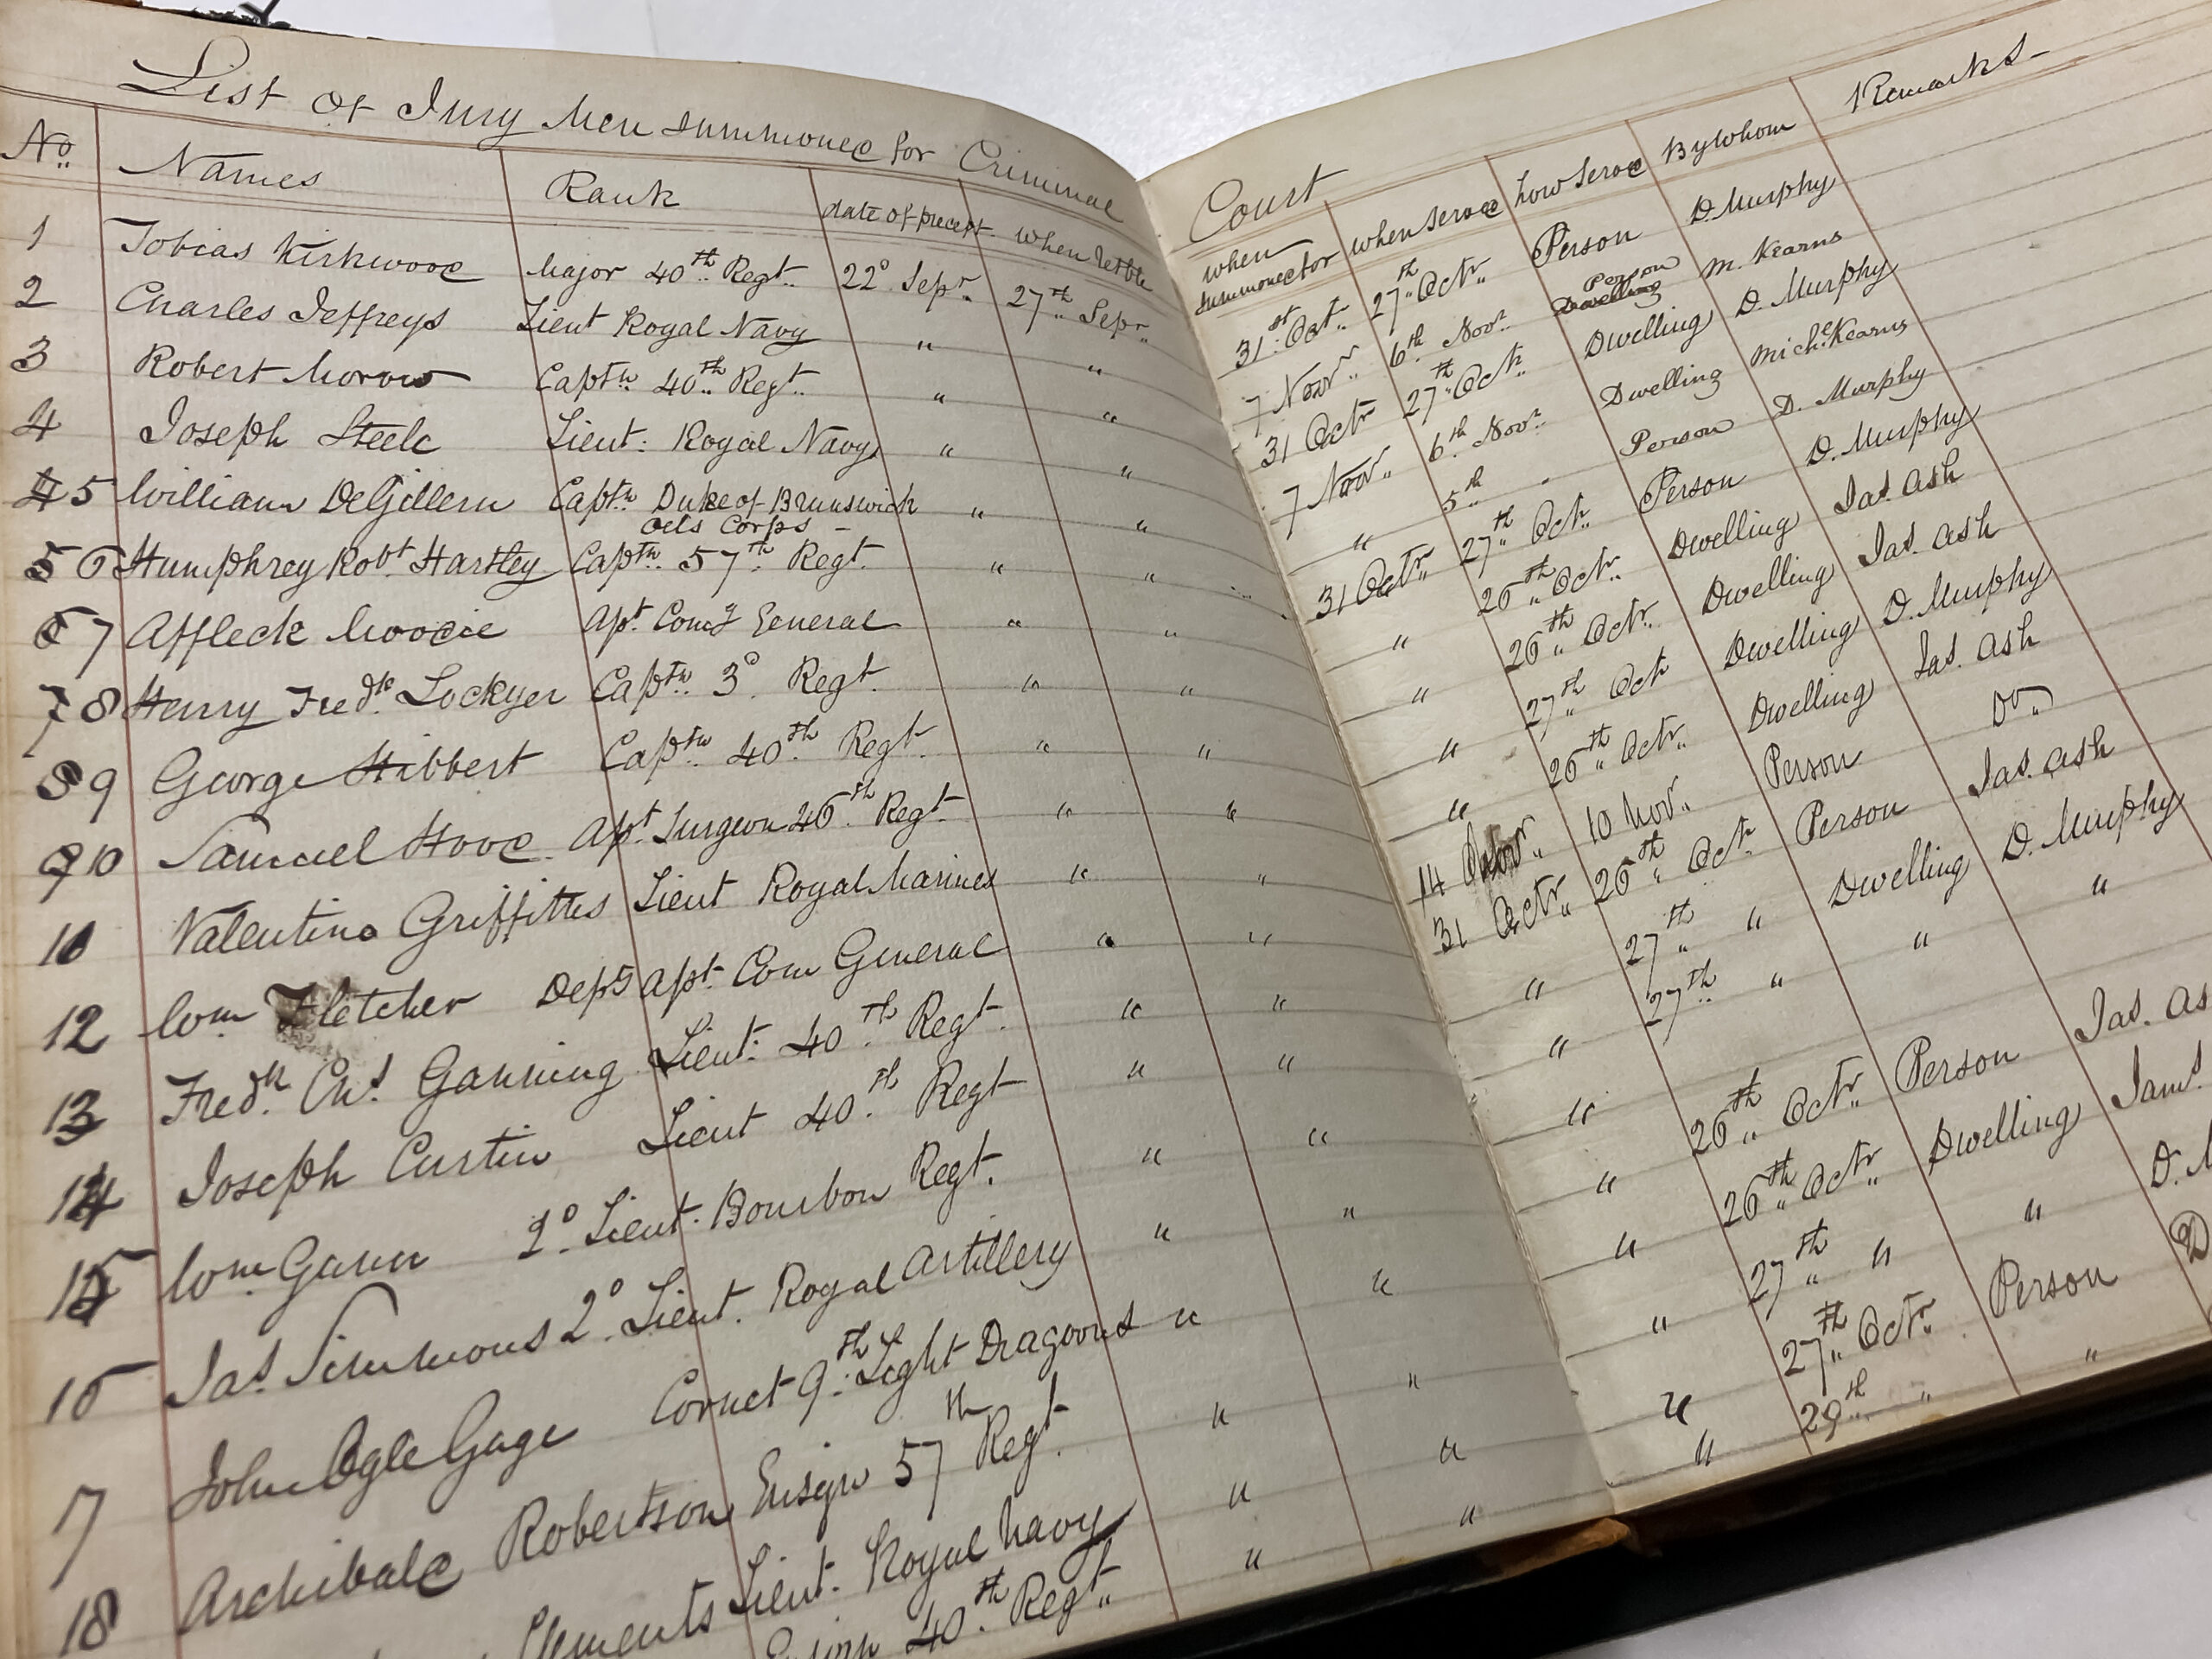 List of Jury Men summoned for Criminal Court
No. Names Rank date of precept when Retble when summoned for when served how served By whom Remarks
1 Tobias Kirkwood Major 40th Regt. 22d Sepr. 27th Sepr. 31st Oct. 27th Octr. Person D. Murphy
2 Charles Jeffreys Lieut Royal Navy " " 7 Novr. 6th Novr. Person Dwelling M. Kearns
3 Robert Morow Captn. 40th Regt. " " 31 Octr 27th Oct. Dwelling D. Murphy
4 Joseph Steele Lieut. Royal Navy " " 7 Novr. 6th Novr. Dwelling Michl. Kearns
5 William DeGillern Captn. Duke of Brunswick " " " 5th " Person D. Murphy
Oels Corps
6 Humphrey Robt. Hartley Captn. 57th Regt. " " 31 Octr. 27th Oct. Person D. Murphy
7 Affleck Moodie Asst. Comy General " " " 26th Octr. Dwelling Jas. Ash
8 Henry Fredk. Lockyer Captn. 3d. Regt. " " " 26th Octr. Dwelling Jas. Ash
9 George Hibbert Captn. 40th Regt. " " " 27th Oct Dwelling D. Murphy
10 Samuel Hood Asst Surgeon 46th Regt. " " " 26th Octr. Dwelling Jas. Ash
11 Valentine Griffiths Lieut Royal Marines " " 14 Novr. 10 Nov. Person Do.
12 Wm. Fletcher Depy Asst. Com General " " 31 Octr. 26th Oct. Person Jas. Ash
13 Fredk. Chs. Ganning Lieut. 40th Regt. " " " 27th " Dwelling D. Murphy
14 Joseph Curtin Lieut 40th Regt " " " 27th " " "
15 Wm. Gunn 2d. Lieut. Bourbon Regt. " " "
16 Jas. Simmons 2d. Lieut. Royal Artillery " " " 26th Octr. Person Jas. As
17 John Ogle Gage Cornet 9th Light Dragoons " " " 26th Octr. Dwelling Jams.
18 Archibald Robertson Ensign 57th Regt. " " " 27th " " D. M
Clements Lieut. Royal Navy " " " 27th Octr. Person D
Ensign 40th Regt. " " " 29th " "